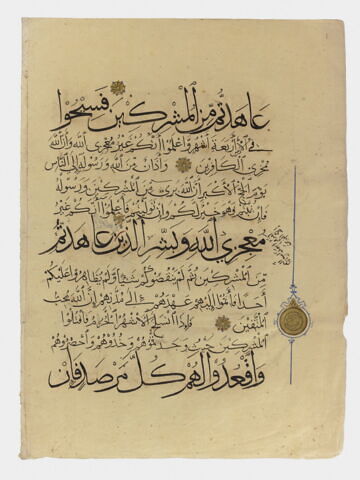 عاهدتم من المشركين فسيحوا
في الأرض أربعة أشهر واعلموا أنكم غير معجزي الله وأن الله
مخزي الكافرين وأذان من الله ورسوله إلى الناس
يوم الحج الأكبر أن الله بريء من المشركين ورسوله
فإن تبتم فهو خير لكم وإن توليتم فاعلموا أنكم غير
معجزي الله وبشر الذين عاهدتم
من المشركين ثم لم ينقصوكم شيئا ولم يظاهروا عليكم
أحدا فأتموا إليهم عهدهم إلى مدتهم إن الله يحب
المتقين فإذا انسلخ الأشهر الحرم فاقتلوا
المشركين حيث وجدتموهم وخذوهم واحصروهم
واقعدوا لهم كل مرصد فإن